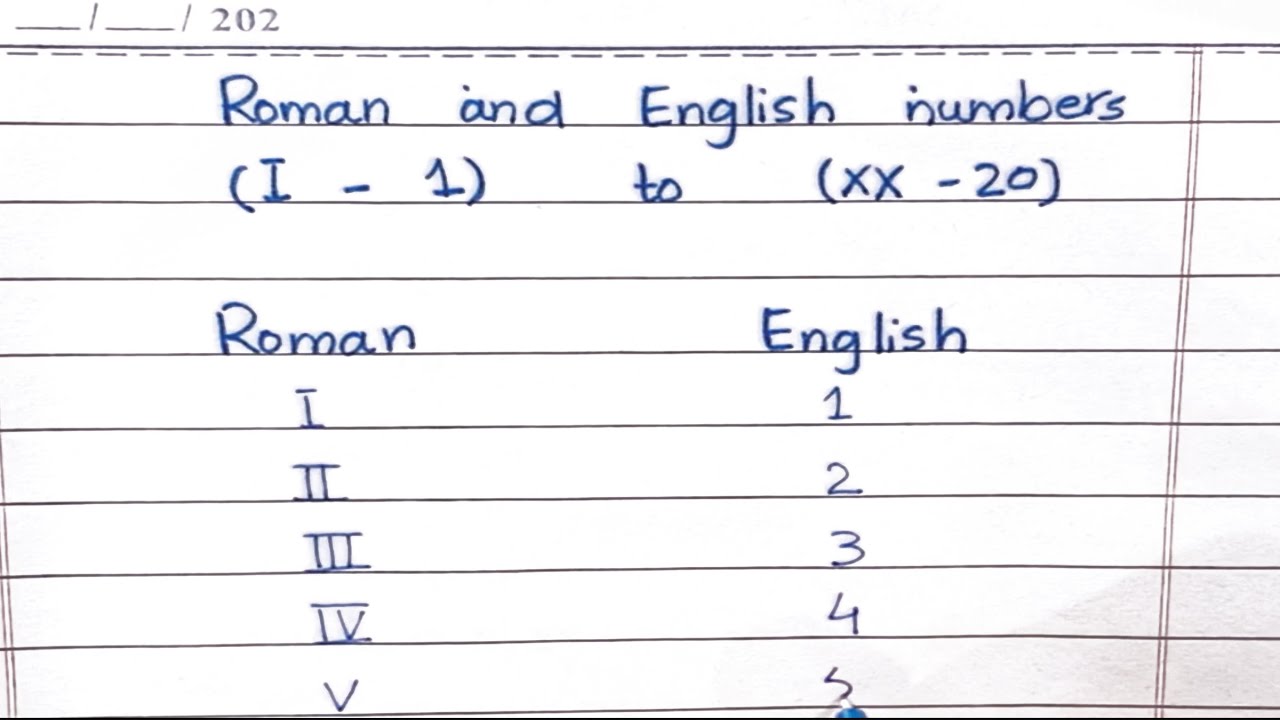 __/__/ 202
Roman and English numbers
(I - 1) to (XX - 20)
Roman English
I 1
II 2
III 3
IV 4
V 5